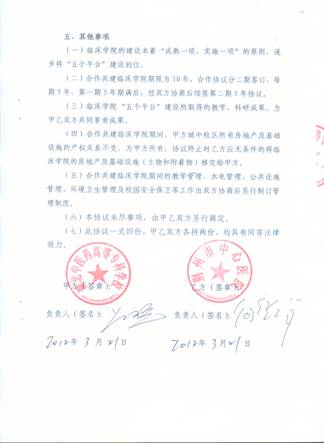 五、其他事项
（一）临床学院的建设本着“成熟一项，实施一项”的原则，逐
步将“五个平台”建设到位。
（二）合作共建临床学院期限为10年，合作协议分二期签订，每
期5年，第一期5年期满后，经双方协商后续签第二期5年协议。
（三）临床学院“五个平台”建设所取得的教学、科研成果，为
甲乙双方共同享有成果。
（四）合作共建临床学院期间，甲方城中校区所有房地产及基础
设施的产权关系不变，为甲方所有；协议终止时乙方应无条件的将临
床学院的房地产及基础设施（主物和附着物）移交给甲方。
（五）合作共建临床学院期间的教学管理、水电管理、公共设施
管理、环境卫生管理及校园安全保卫等工作由双方协商后另行制订管
理制度。
（六）本协议未尽事项，由甲乙双方另行商定。
（七）此协议一式四份，甲乙双方各持两份，均具有同等法律
效力。
湖北中医药高等专科学校
荆州市中心医院
甲方（签章）： 乙方（签章）：
负责人（签名）： 负责人（签名）：
2012年3月21日 2012年3月21日